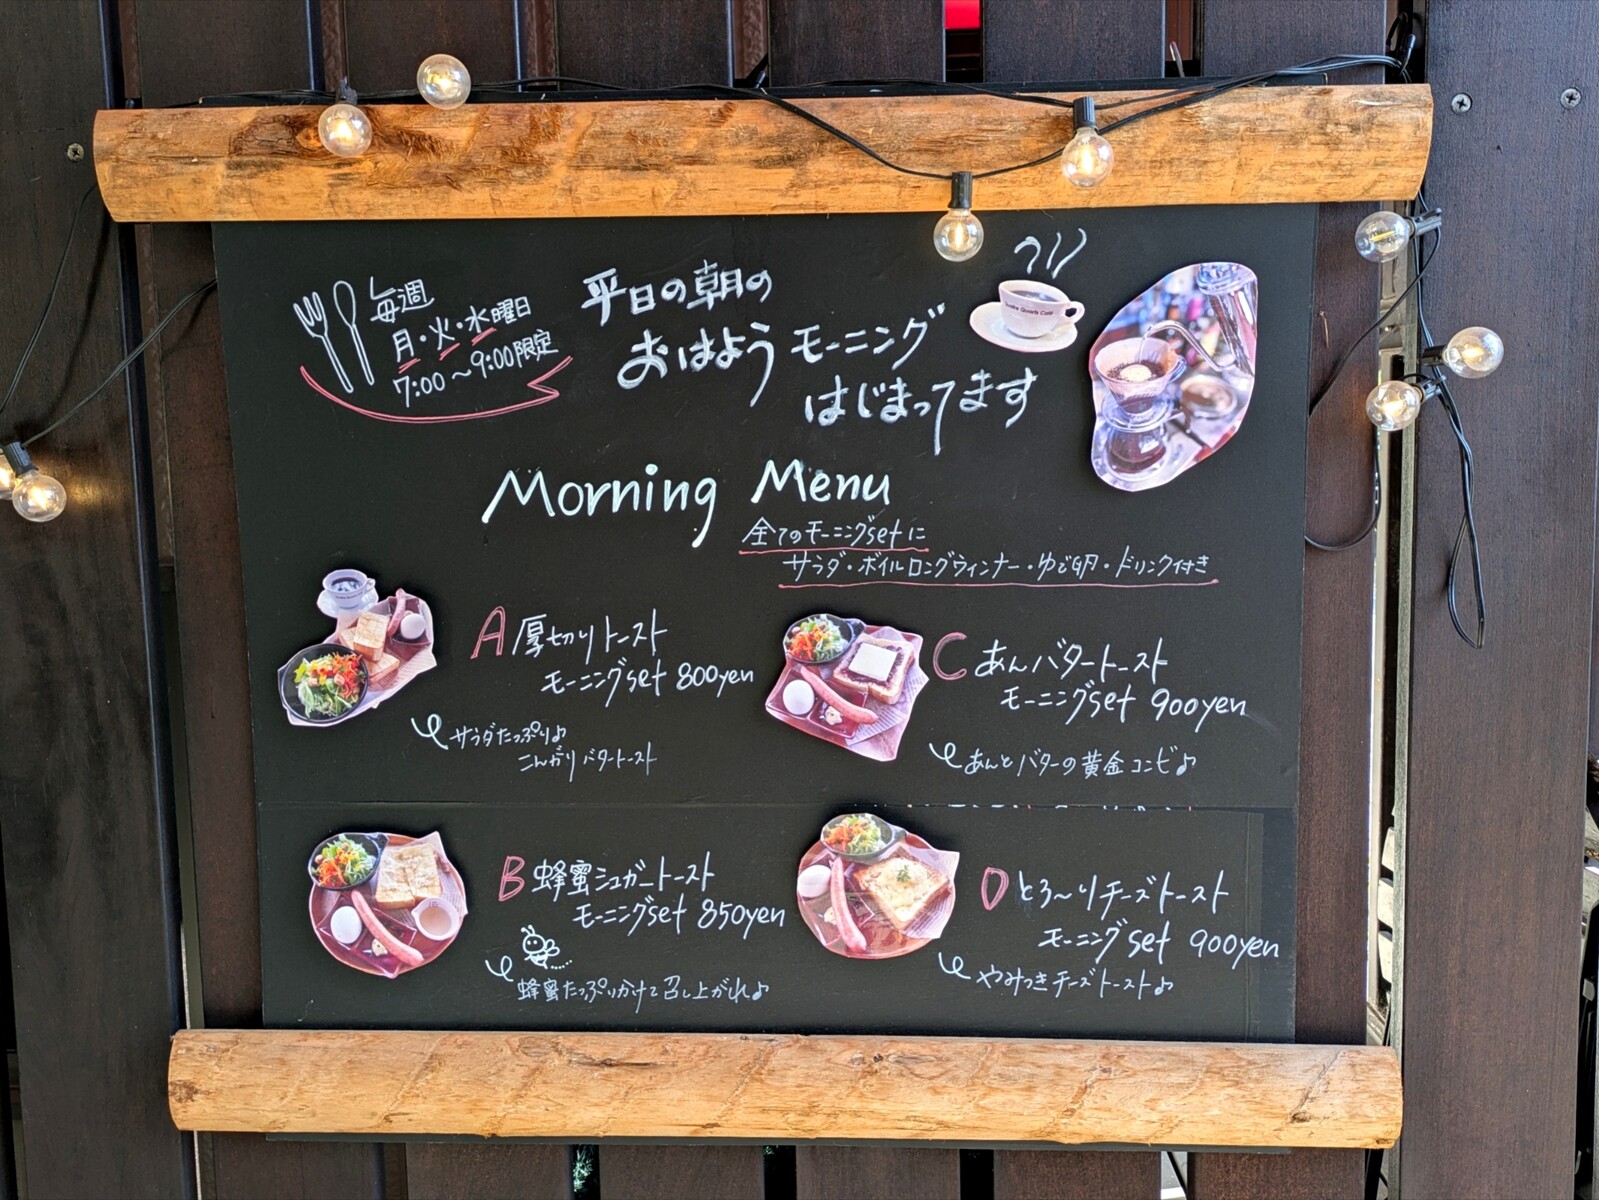 毎週
月・火・水曜日
7:00〜9:00限定
平日の朝の
おはようモーニング
はじまってます
Morning Menu
全てのモーニングsetに
サラダ・ボイルロングウィンナー・ゆで卵・ドリンク付き
A 厚切りトースト
モーニングset 800yen
サラダたっぷり♪
こんがりバタートースト
B 蜂蜜シュガートースト
モーニングset 850yen
蜂蜜たっぷりかけて召し上がれ♪
C あんバタートースト
モーニングset 900yen
あんとバターの黄金コンビ♪
D とろ〜りチーズトースト
モーニングset 900yen
やみつきチーズトースト♪